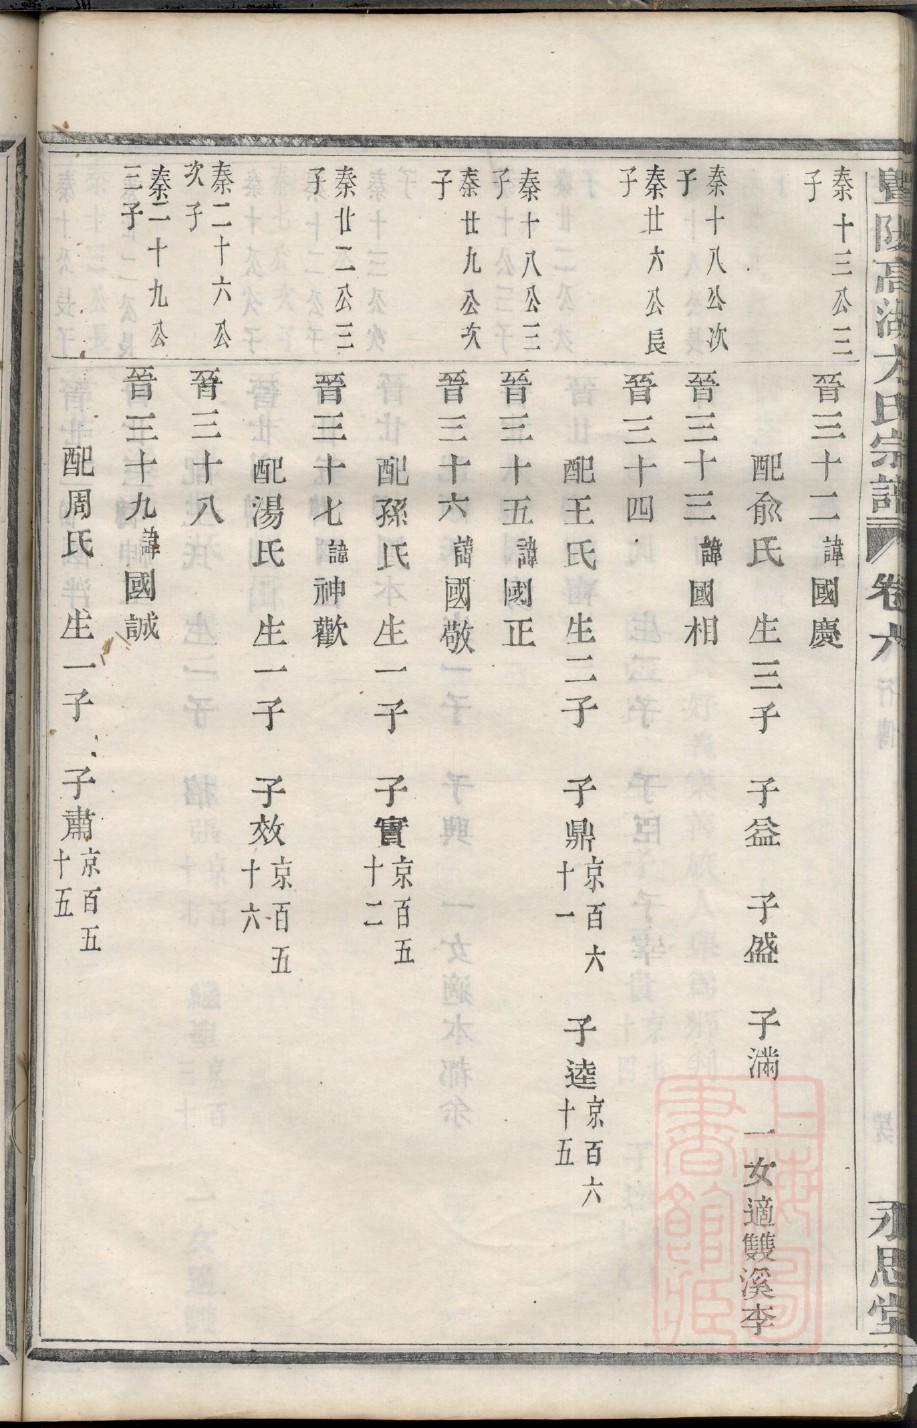 暨陽高湖氏宗譜 卷六 永思堂
秦十三公三
子
秦十八公次
子
秦廿六公長
子
秦十八公三
子
秦廿九公次
子
秦廿二公三
子
秦二十六公
次子
秦二十九公
三子
晉三十二諱國慶
配俞氏 生三子 子益 子盛 子滿 一女適雙溪李
晉三十三諱國相
晉三十四
配王氏 生二子 子鼎京百六十一 子逵京百六十五
晉三十五諱國正
晉三十六諱國敬
配孫氏 生一子 子實京百五十二
晉三十七諱神歡
配湯氏 生一子 子效京百五十六
晉三十八
晉三十九諱國誠
配周氏 生一子 子肅京百五十五